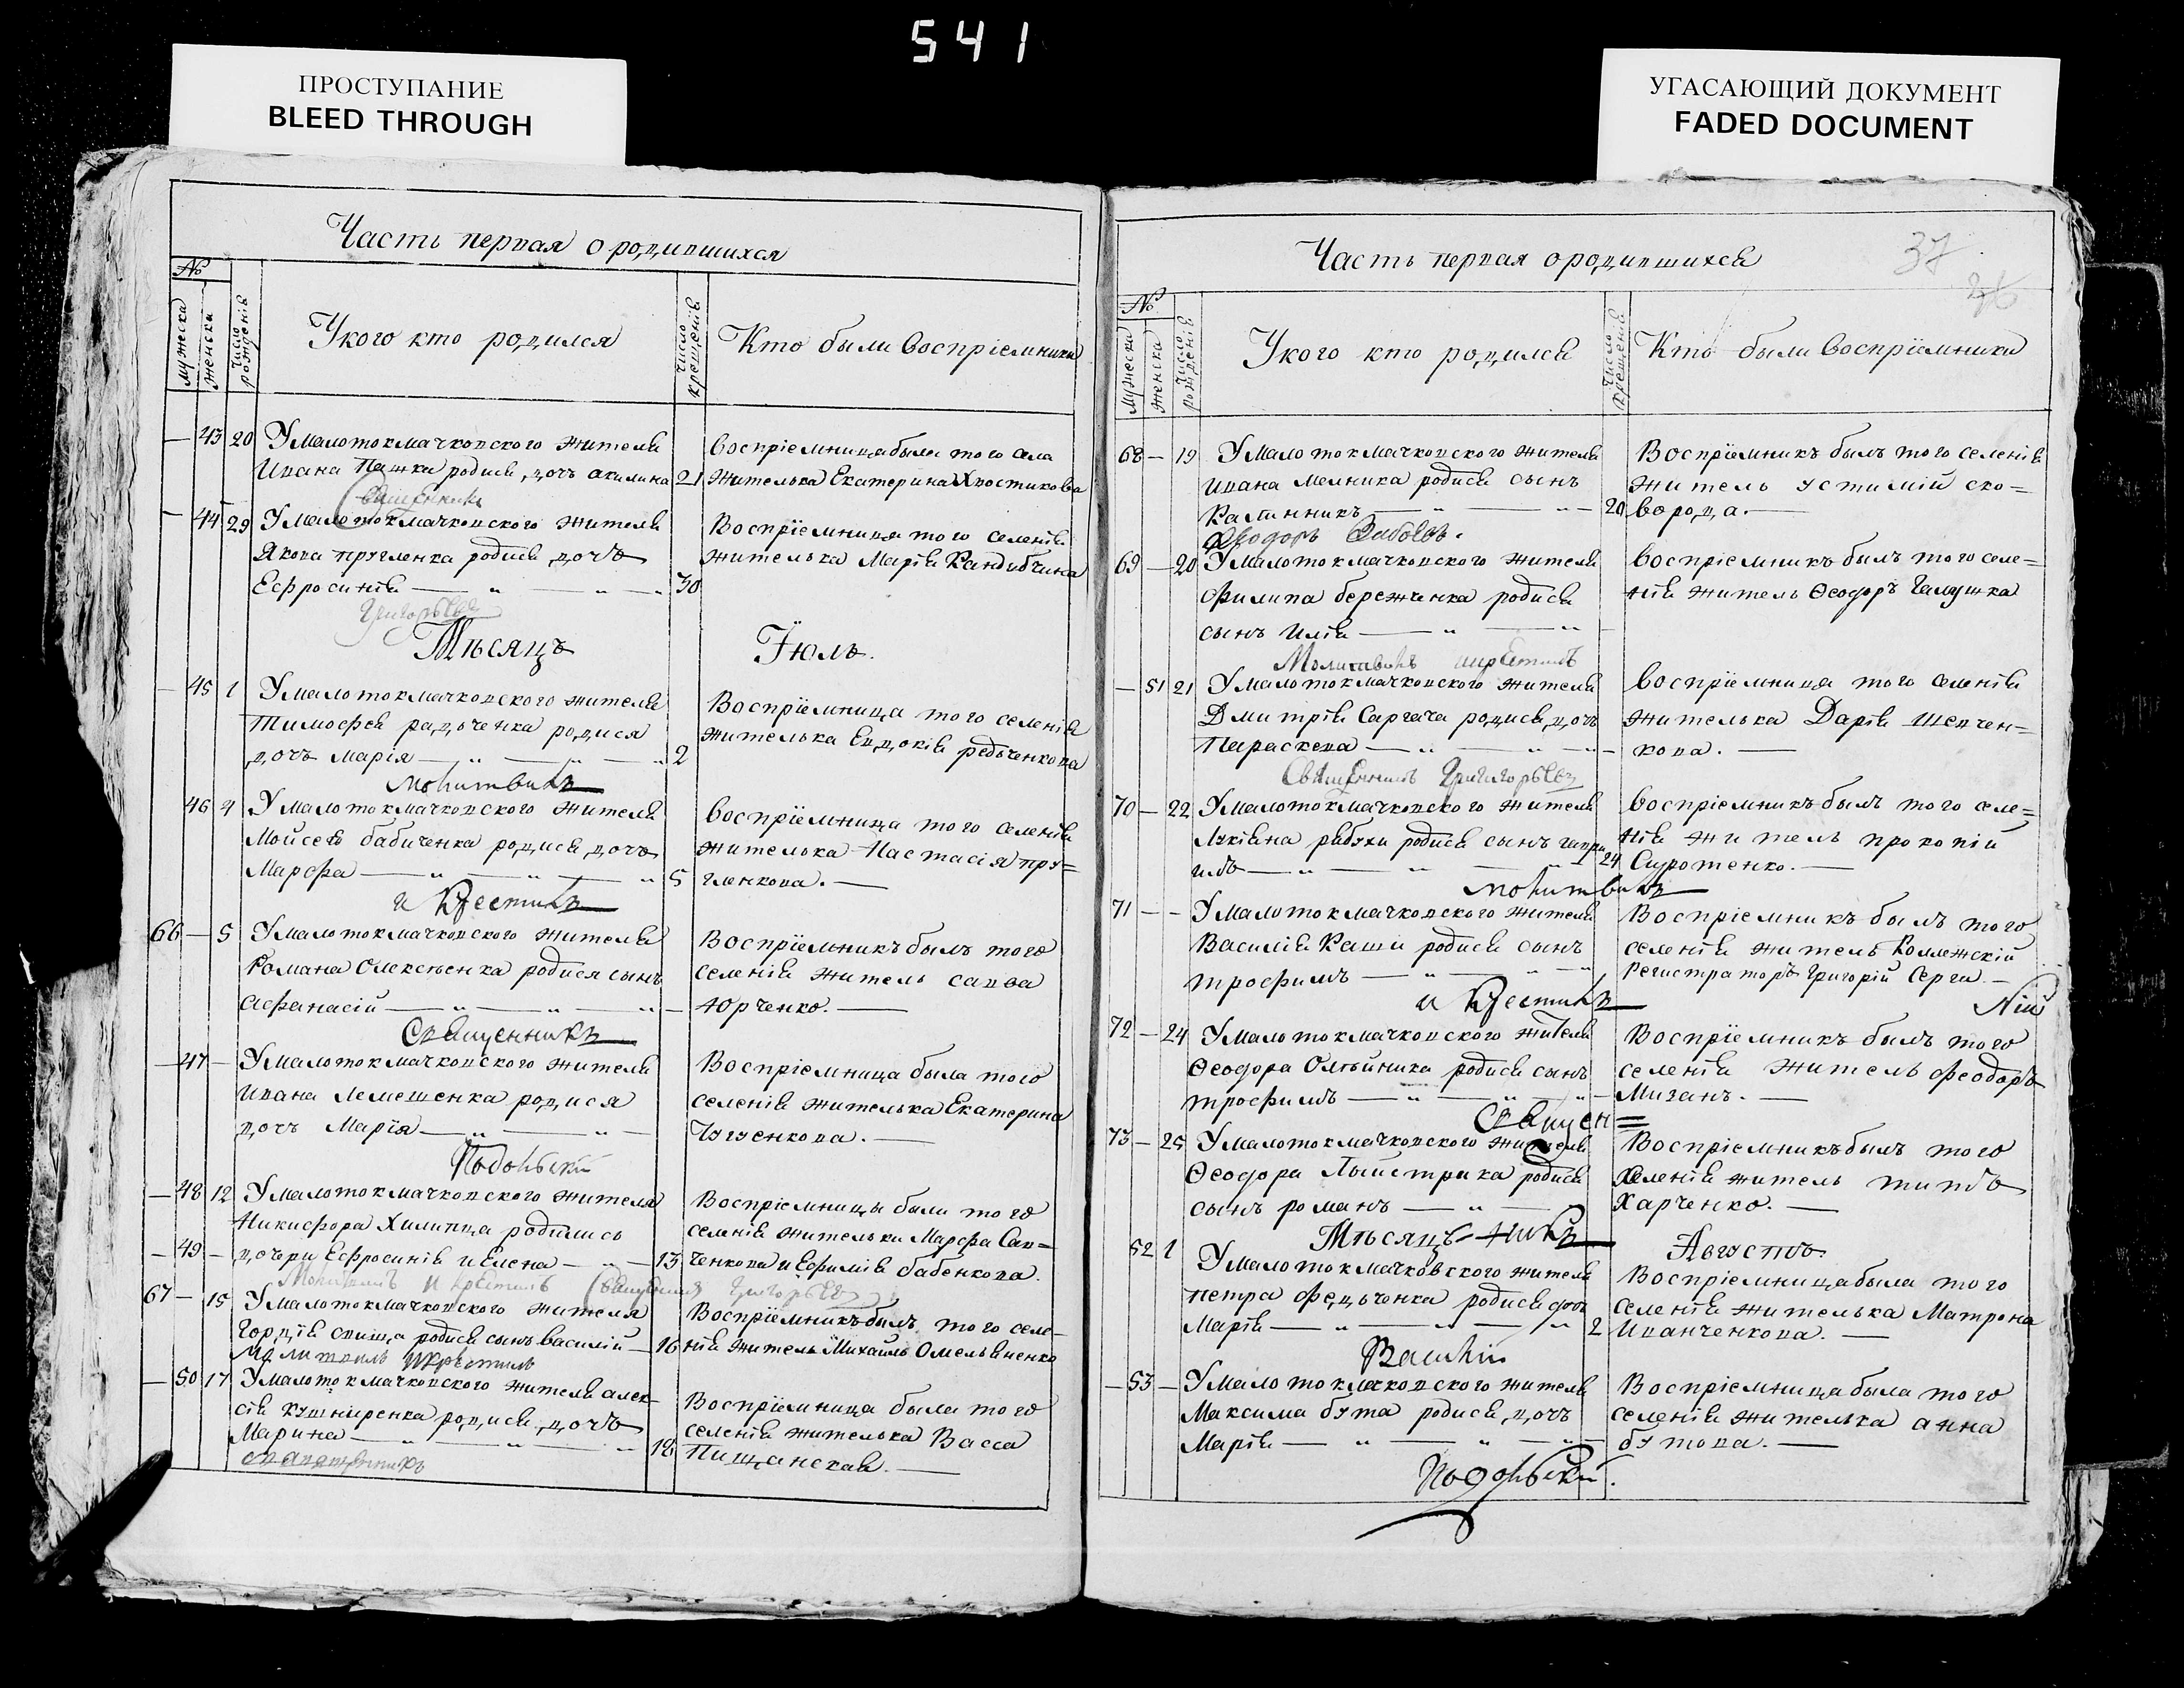 541
ПРОСТУПАНИЕ
BLEED THROUGH
УГАСАЮЩИЙ ДОКУМЕНТ
FADED DOCUMENT
Часть первая о родившихся
№
мужеска
женска
число рожденія
У кого кто родился
число крещенія
Кто были Воспріемники
43 20 У малотокмачковского жителя
Ивана Пашка родися дочь акилина 21
воспріемница была того села
жителька Екатерина Хвостикова
44 29 У малотокмачковского жителя
Якова пругленка родися дочь
Ефросинія 30
Воспріемница того селенія
жителька Марія Кандибчина
Григорьевъ
Мѣсяцъ Іюль.
45 1 У малотокмачковского жителя
Тимофея радьченка родися
дочь Марія 2
Воспріемница того селенія
жителька Евдокія редьченкова
молитвилъ
46 4 У малотокмачковского жителя
Мойсея бабиченка родися дочь
Марфа 5
воспріемница того селенія
жителька Настасія пру=
гленкова.
и крестилъ
66 5 У малотокмачковского жителя
Романа Олексѣенка родися сынъ
Афанасій
Воспріемникъ былъ того
селенія житель савва
Юрченко.
Священникъ
47 У малотокмачковского жителя
Ивана Лемешенка родися
дочь Марія
Воспріемница была того
селенія жителька Екатерина
Чугуенкова.
Подольскій
48 12 У малотокмачковского жителя
Никифора Хилитца родились
49 дочери Ефросинія и Елена 13
Воспріемницы были того
селенія жительки Марфа Сав=
ченкова и Ефимія бабенкова.
Молитвилъ и крестилъ Священникъ Григорьевъ
67 15 У малотокмачковского жителя
Гордія спица родися сынъ василій 16
Воспріемникъ былъ того селе=
нія житель Михаилъ Омельяненко
Молитвилъ и крестилъ
50 17 У малотокмачковского жителя алек=
сія кушніренка родися дочь
Марина 18
Воспріемница была того
селенія жителька Васса
Пищанская.
Часть первая о родившихся
37
№
мужеска
женска
число рожденія
У кого кто родился
число крещенія
Кто были Воспріемники
68 19 У малотокмачковского жителя
Ивана мелника родися сынъ
Калинникъ 20
Воспріемникъ былъ того селенія
житель устимій ско=
ворода.
69 20 У малотокмачковского жителя
Филипа бережненка родися
сынъ Илія
воспріемникъ былъ того селе=
нія житель Ѳеодоръ Галушка
Молитвилъ и крестилъ
51 21 У малотокмачковского жителя
Дмитрія Саргача родися дочь
Параскева
воспріемница того селенія
жителька Дарія Шевчен=
кова.
Священникъ Григорьевъ
70 22 У малотокмачковского жителя
Лукіяна рябухи родися сынъ гаври
илъ 24
воспріемникъ былъ того селе=
нія житель прокопій
Сиротенко.
молитвилъ
71 У малотокмачковского жителя
Василія Каши родися сынъ
трофимъ
Воспріемникъ былъ того
селенія житель Коллежскій
Регистраторъ Григорій Серги
лій
и крестилъ
72 24 У малотокмачковского жителя
Ѳеодора Олѣйника родися сынъ
трофимъ
Воспріемникъ былъ того
селенія житель феодоръ
Мизанъ.
Священ=
73 25 У малотокмачковского жителя
Ѳеодора Лыистрика родися
сынъ романъ
Воспріемникъ былъ того
селенія житель титъ
Харченко.
никъ
Мѣсяцъ Августъ.
52 1 У малотокмачковского жителя
петра федьченка родися дочь
Марія 2
Воспріемница была того
селенія жителька Матрона
Иванченкова.
Василій
53 У малотокмачковского жителя
Максима бута родися дочь
Марія
Воспріемница была того
селенія жителька анна
бутова.
Подольскій.